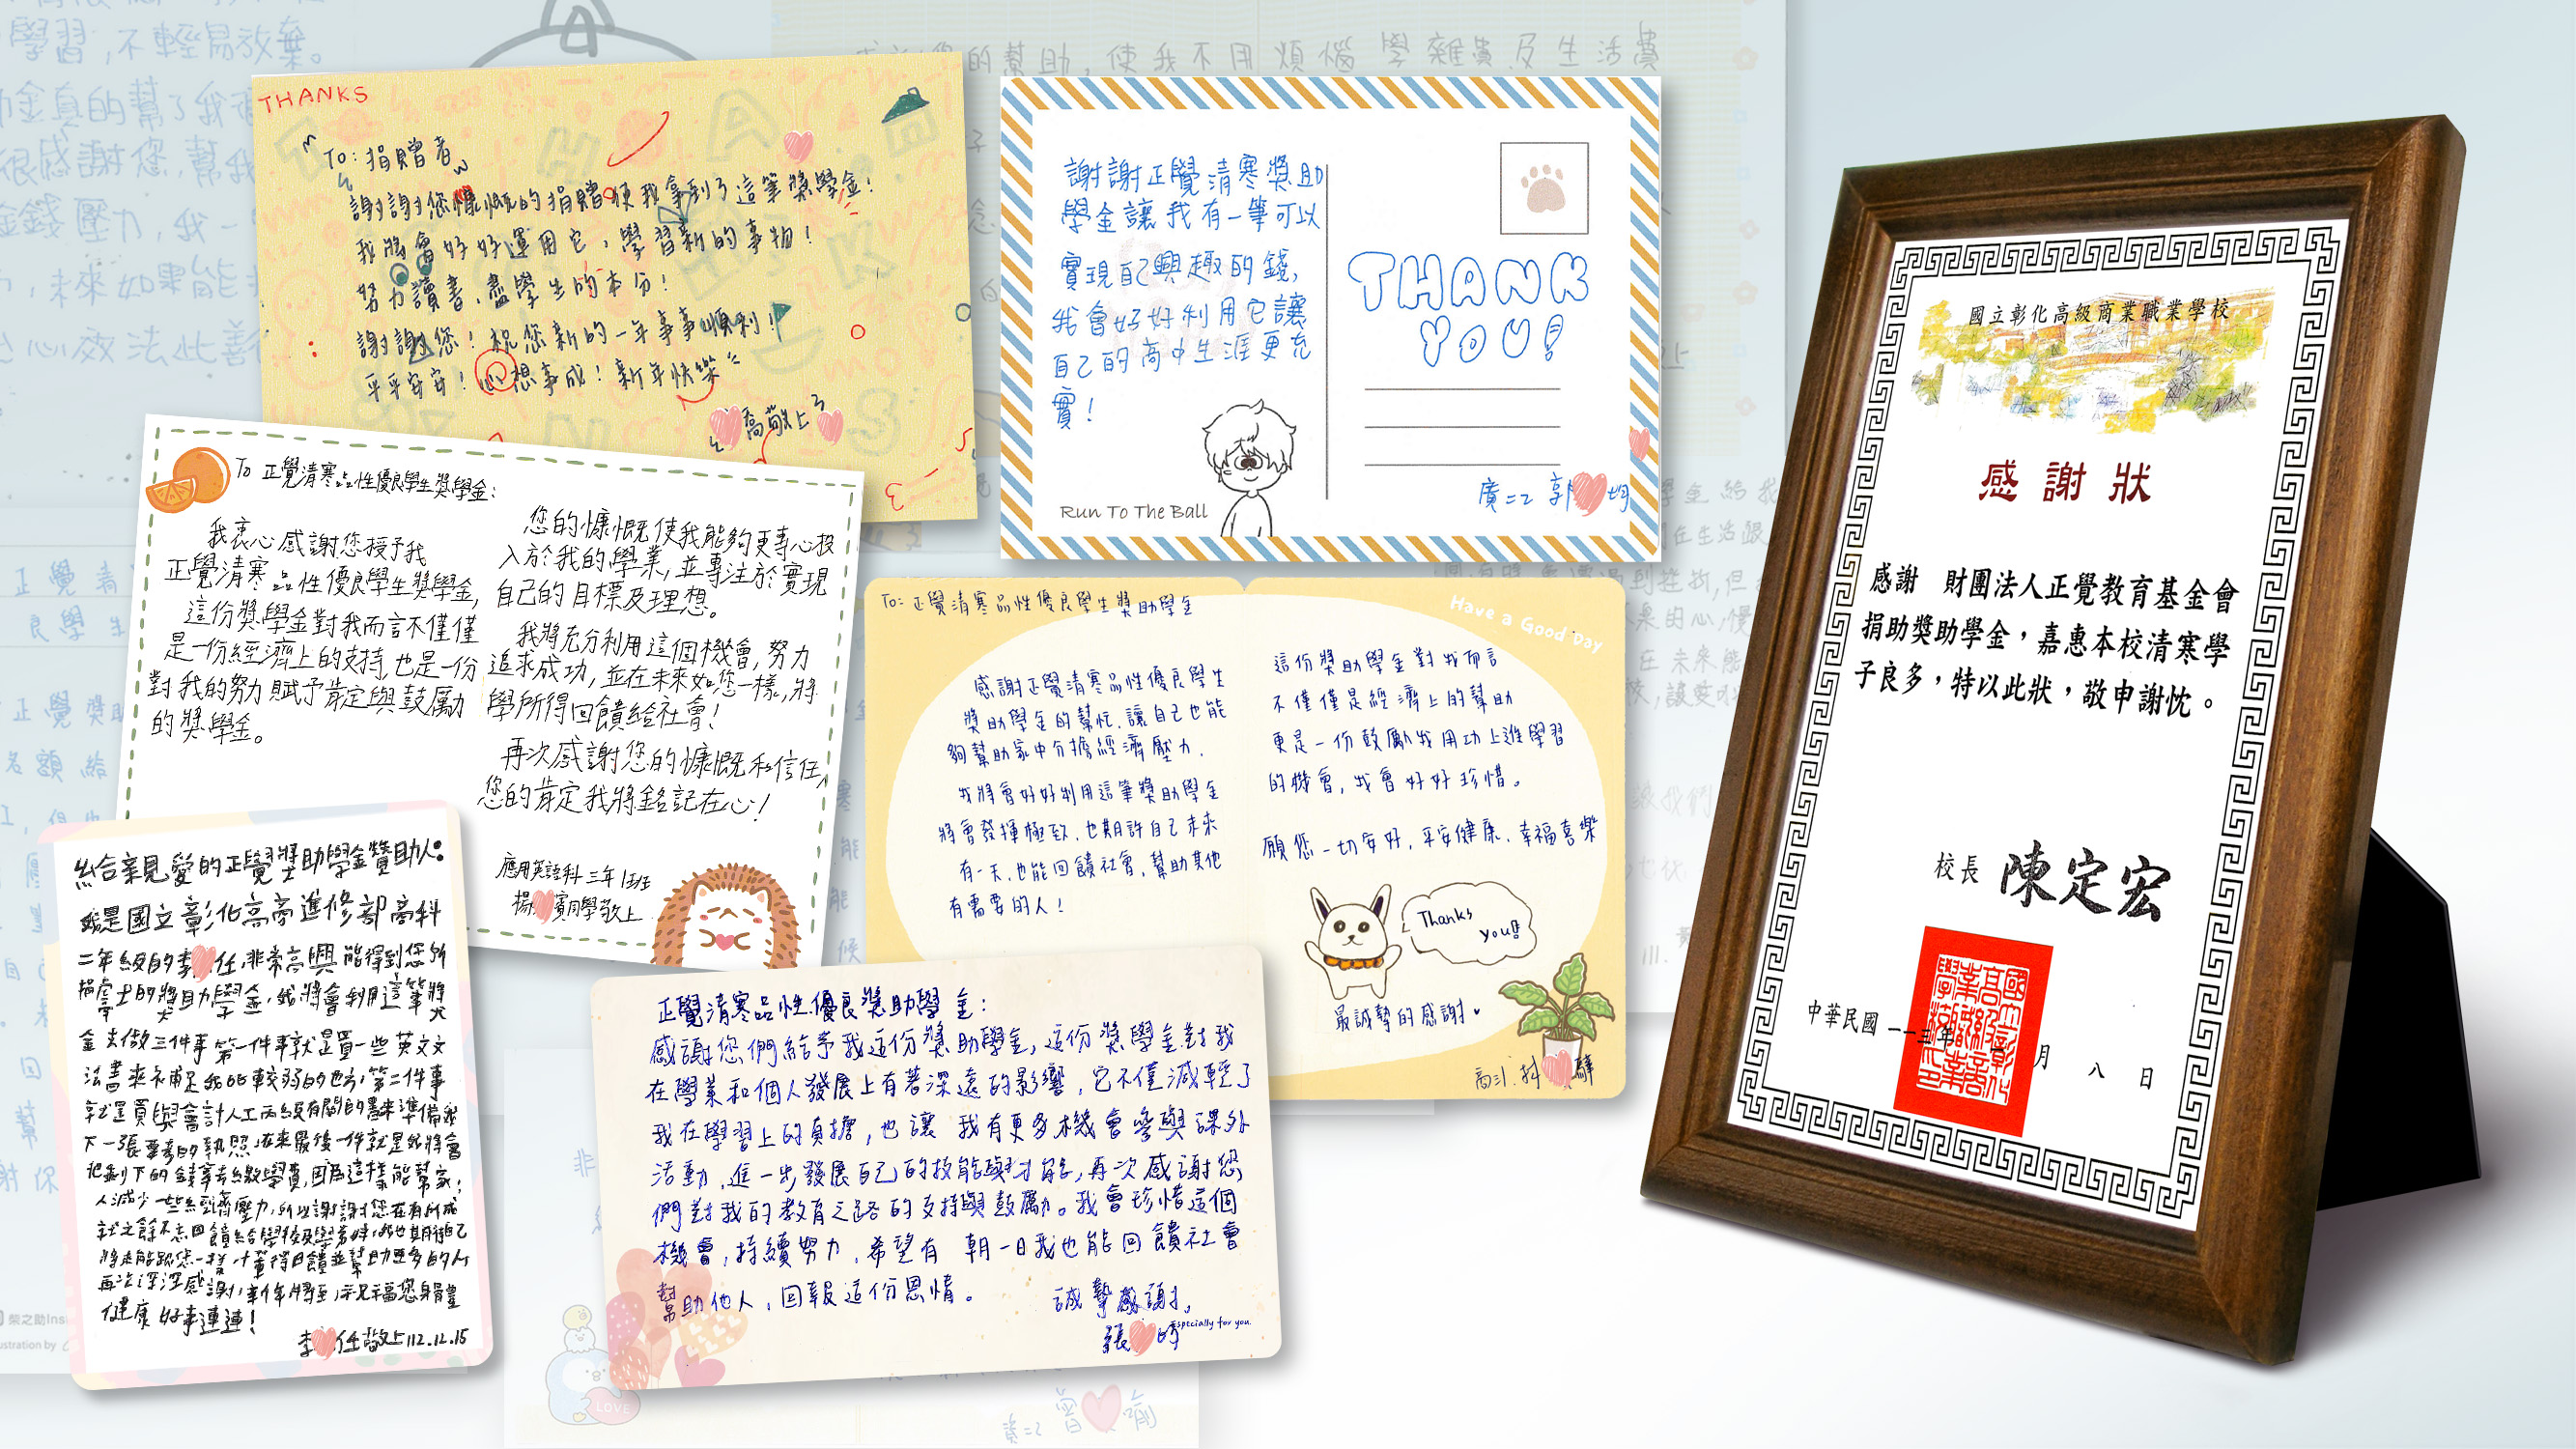 THANKS
To: 捐贈者
謝謝您慷慨的捐贈使我拿到了這筆獎學金!
我將會好好運用它,學習新的事物!
努力讀書、盡學生的本分!
謝謝您!祝您新的一年事事順利!
平平安安!心想事成!新年快樂
喬敬上
謝謝正覺清寒獎助
學金讓我有一筆可以
實現自己興趣的錢,
我會好好利用它讓
自己的高中生涯更充
實!
Run To The Ball
THANK
YOU!
廣二乙 郭
To 正覺清寒品性優良學生獎學金:
我衷心感謝您授予我
正覺清寒品性優良學生獎學金,
這份獎學金對我而言不僅僅
是一份經濟上的支持,也是一份
對我的努力賦予肯定與鼓勵
的獎學金。
您的慷慨使我能夠更專心投
入於我的學業,並專注於實現
自己的目標及理想。
我將充分利用這個機會,努力
追求成功,並在未來如您一樣,將
學所得回饋給社會!
再次感謝您的慷慨和信任,
您的肯定我將銘記在心!
應用英語科三年1班
楊 賓同學敬上
To: 正覺清寒品性優良學生獎助學金
Have a Good Day
感謝正覺清寒品性優良學生
獎助學金的幫忙,讓自己也能
夠幫助家中分擔經濟壓力.
我將會好好利用這筆獎助學金
將會發揮極致.也期許自己未來
有一天,也能回饋社會,幫助其他
有需要的人!
這份獎助學金對我而言
不僅僅是經濟上的幫助
更是一份鼓勵我用功上進學習
的機會,我會好好珍惜。
願您一切安好,平安健康.幸福喜樂
Thanks
you!!
最誠摯的感謝。
給親愛的正覺獎助學金贊助人:
我是國立彰化高商進修部商科
二年級的李 任,非常高興能得到您所
捐寄的獎助學金,我將會利用這筆獎
金去做三件事 第一件事就是買一些英文文
法書來補足我比較弱的地方,第二件事
就是買與會計人工丙級有關的書來準備我
下一張要考的執照,在來最後一件就是我將會
把剩下的錢拿去繳學費,因為這樣能幫家
人減少一些經濟壓力,所以謝謝您在有所成
就之餘不忘回饋給學校及學弟妹,我也期待自己
將來能跟您一樣,懂得回饋並幫助更多的人
再次深深感謝,新年將至,祝福您身體
健康 好事連連!
李 任敬上 112.12.15
正覺清寒品性優良獎助學金:
感謝您們給予我這份獎助學金,這份獎學金對我
在學業和個人發展上有著深遠的影響,它不僅減輕了
我在學習上的負擔,也讓 我有更多機會參與課外
活動,進一步發展自己的技能與才能,再次感謝您
們對我的教育之路的支持與鼓勵。我會珍惜這個
機會,持續努力,希望有 朝一日我也能回饋社會
幫助他人,回報這份恩情。
誠摯感謝,
張
especially for you.
國立彰化高級商業職業學校
感謝狀
感謝 財團法人正覺教育基金會
捐助獎助學金,嘉惠本校清寒學
子良多,特以此狀,敬申謝忱。
校長 陳定宏
中華民國一一三年 月八日